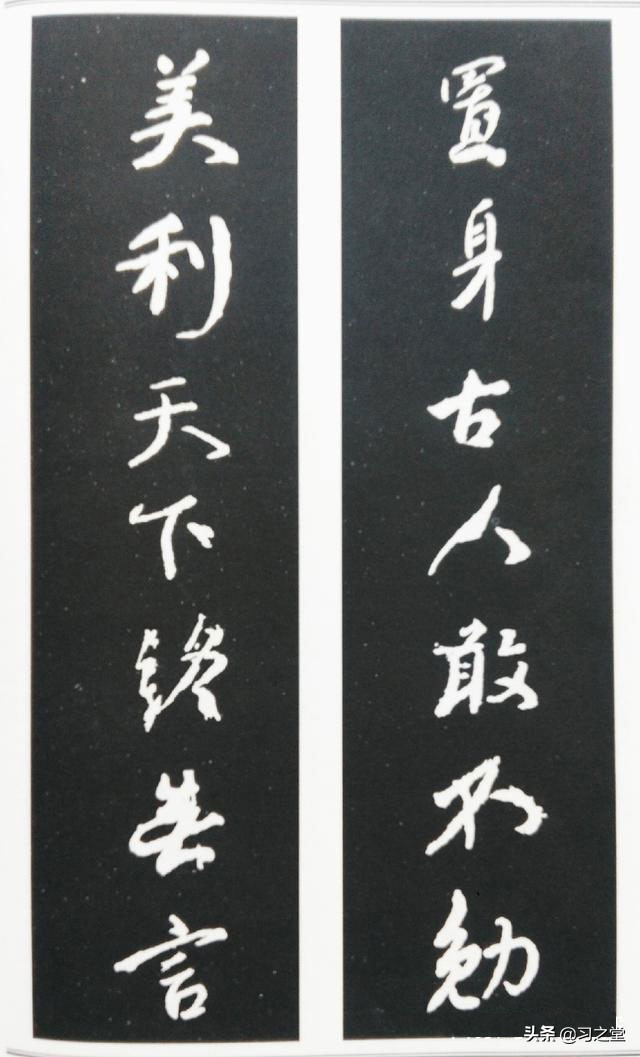 置身古人敢不勉
美利天下終無言
头条 @习之堂